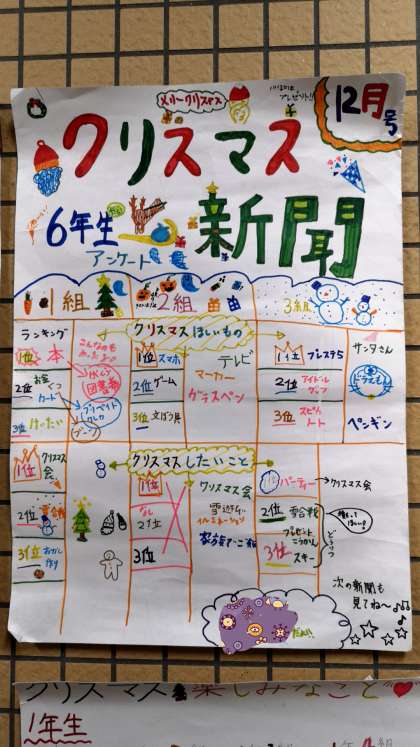 メリークリスマス
プレゼント!!
12月号
クリスマス
新聞
6年生
アンケート
1組
2組
3組
クリスマスほしいもの
ランキング
1位 本
2位 お金 カード
3位 けいたい
図書券
プリペイドカード
1位 スマホ
2位 ゲーム
3位 文ぼう具
テレビ
マーカー
ガラスペン
1位 プレステ5
2位 アイドルグッズ
3位
サンタさん
ドラえもん
ペンギン
クリスマスしたいこと
1位 クリスマス会
2位
3位 おかし作り
1位 なし
2位
3位
クリスマス会
雪遊び
イルミネーション
1位 パーティー
クリスマス会
2位 雪合戦
プレゼントこうかん
3位 スキー
次の新聞も
見てね〜♪
クリスマス楽しみなこと
1年生